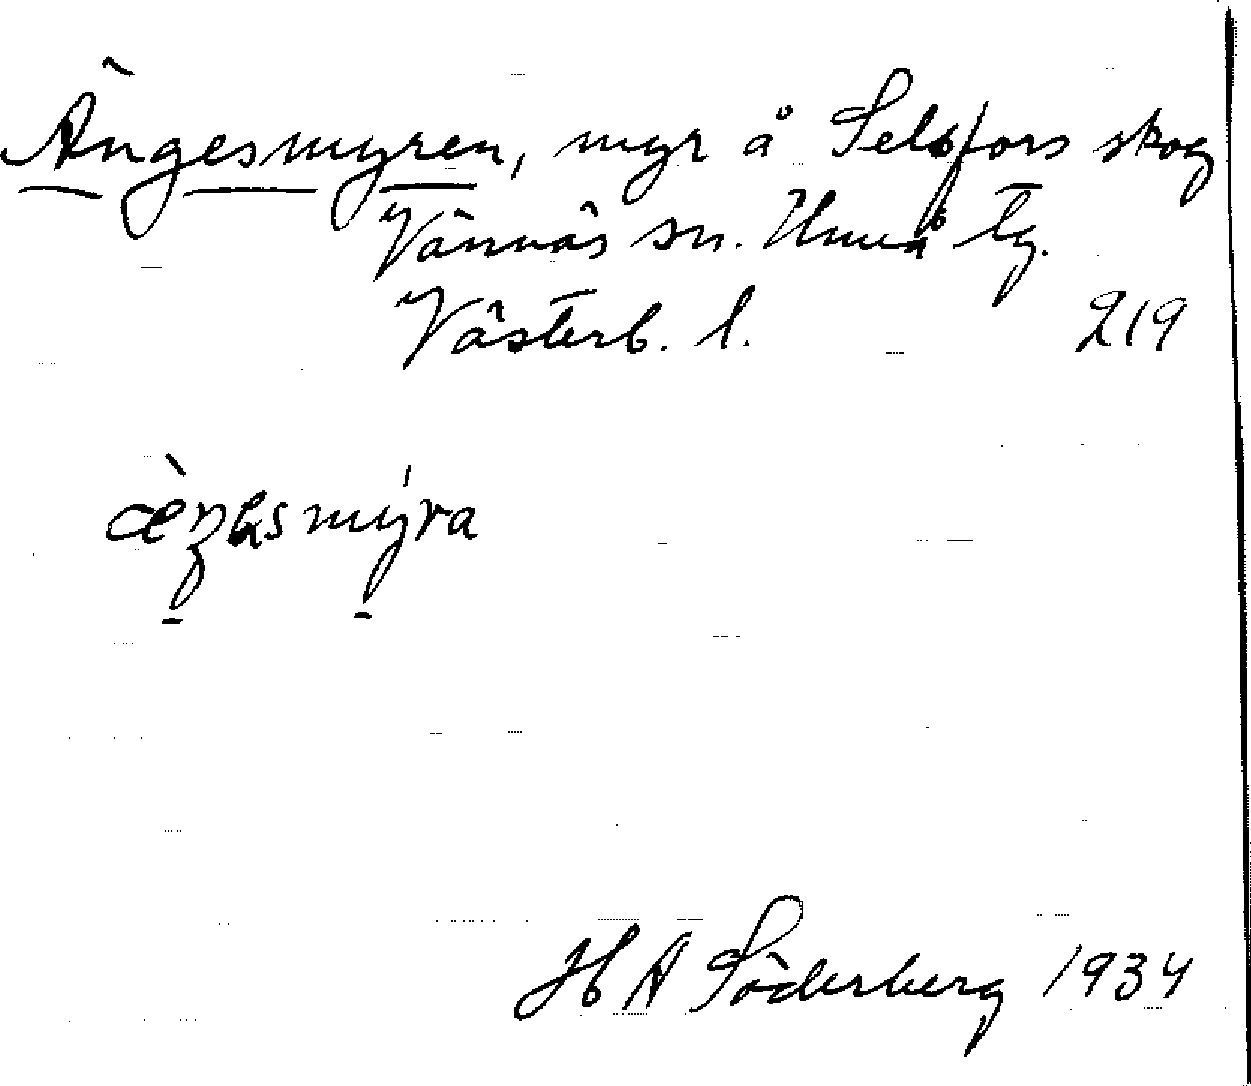 Ängesmyren, myr å Selsfors skog
Vännäs sn. Umeå tg.
Västerb. l. 219
H A Söderberg 1934